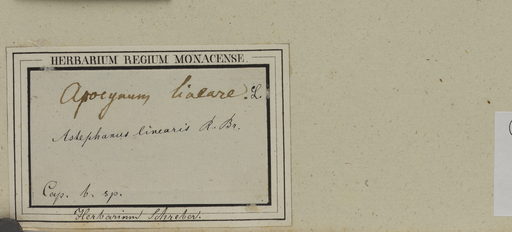 HERBARIUM REGIUM MONACENSE.
Apocynum lineare. L.
Astephanus linearis R. Br.
Cap. b. sp.
Herbarium Schreber.